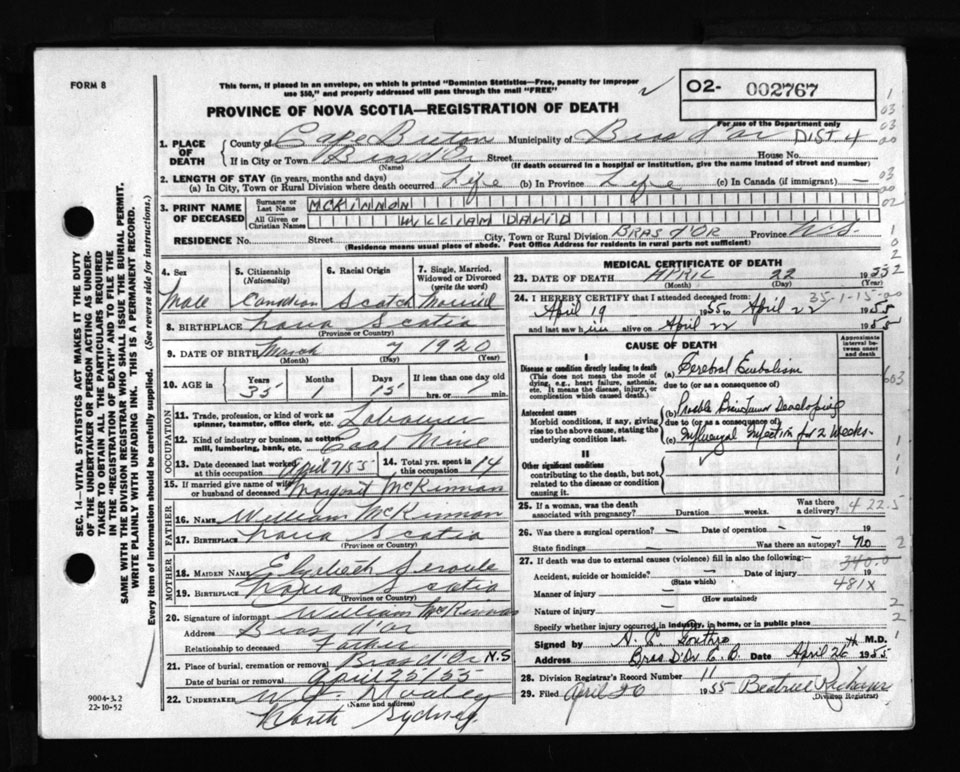 FORM 8
This form, if placed in an envelope, on which is printed "Dominion Statistics—Free, penalty for improper
use $50," and properly addressed will pass through the mail "FREE"
PROVINCE OF NOVA SCOTIA—REGISTRATION OF DEATH
O2- 002767
For use of the Department only
1. PLACE OF DEATH
County of Cape Breton Municipality of Bras d'or DIST 4
If in City or Town Bras d'Or Street House No.
(Name) (If death occurred in a hospital or institution, give the name instead of street and number)
2. LENGTH OF STAY (in years, months and days)
(a) In City, Town or Rural Division where death occurred Life (b) In Province Life (c) In Canada (if immigrant) —
3. PRINT NAME OF DECEASED
Surname or Last Name MCKINNON
All Given or Christian Names WILLIAM DAVID
RESIDENCE No. Street City, Town or Rural Division BRAS d'OR Province N.S.
(Residence means usual place of abode. Post Office Address for residents in rural parts not sufficient)
4. Sex Male
5. Citizenship (Nationality) Canadian
6. Racial Origin Scotch
7. Single, Married, Widowed or Divorced (write the word) Married
8. BIRTHPLACE Nova Scotia
(Province or Country)
9. DATE OF BIRTH March 7 1920
(Month) (Day) (Year)
10. AGE in Years 35 Months 1 Days 15 If less than one day old
hrs. or min.
OCCUPATION
11. Trade, profession or kind of work as
spinner, teamster, office clerk, etc. Labourer
12. Kind of industry or business, as cotton
mill, lumbering, bank, etc. Coal Mine
13. Date deceased last worked
at this occupation April 7/55
14. Total yrs. spent in
this occupation 14
15. If married give name of wife
or husband of deceased Margaret McKinnon
FATHER
16. NAME William McKinnon
17. BIRTHPLACE Nova Scotia
(Province or Country)
MOTHER
18. MAIDEN NAME Elizabeth
19. BIRTHPLACE Nova Scotia
(Province or Country)
20. Signature of informant William McKinnon
Address Bras d'or
Relationship to deceased Father
21. Place of burial, cremation or removal Bras d'Or N.S
Date of burial or removal April 25/55
22. UNDERTAKER
(Name and address)
North Sydney
MEDICAL CERTIFICATE OF DEATH
23. DATE OF DEATH APRIL 22 1955
(Month) (Day) (Year)
24. I HEREBY CERTIFY that I attended deceased from: 35-1-15
April 19 1955 to April 22 1955
and last saw him alive on April 22 1955
CAUSE OF DEATH
Approximate interval between onset and death
I
Disease or condition directly leading to death
(This does not mean the mode of
dying, e.g., heart failure, asthenia,
etc. It means the disease, injury, or
complication which caused death.)
(a) Cerebral Embolism
due to (or as a consequence of)
Antecedent causes
Morbid conditions, if any, giving
rise to the above cause, stating the
underlying condition last.
(b) Developing
due to (or as a consequence of)
(c) Influenzal Infection for 2 Weeks
II
Other significant conditions
contributing to the death, but not
related to the disease or condition
causing it.
25. If a woman, was the death
associated with pregnancy? Duration weeks. Was there
a delivery? 422.5
26. Was there a surgical operation? — Date of operation — 19
State findings — Was there an autopsy? No
27. If death was due to external causes (violence) fill in also the following:—
Accident, suicide or homicide? — Date of injury 19
(State which) 340.0
Manner of injury — 481X
(How sustained)
Nature of injury —
Specify whether injury occurred in industry, in home, or in public place
Signed by M.D.
Address Bras D'Or C.B. Date April 26th 1955
28. Division Registrar's Record Number 11
29. Filed April 26 1955 Beatrice
(Division Registrar)
SEC. 14—VITAL STATISTICS ACT MAKES IT THE DUTY
OF THE UNDERTAKER OR PERSON ACTING AS UNDER-
TAKER TO OBTAIN ALL THE PARTICULARS REQUIRED
IN THE "REGISTRATION OF DEATH" AND TO FILE THE
SAME WITH THE DIVISION REGISTRAR WHO SHALL ISSUE THE BURIAL PERMIT.
WRITE PLAINLY WITH UNFADING INK. THIS IS A PERMANENT RECORD.
Every item of information should be carefully supplied. (See reverse side for instructions.)
9004-3.2
22-10-52